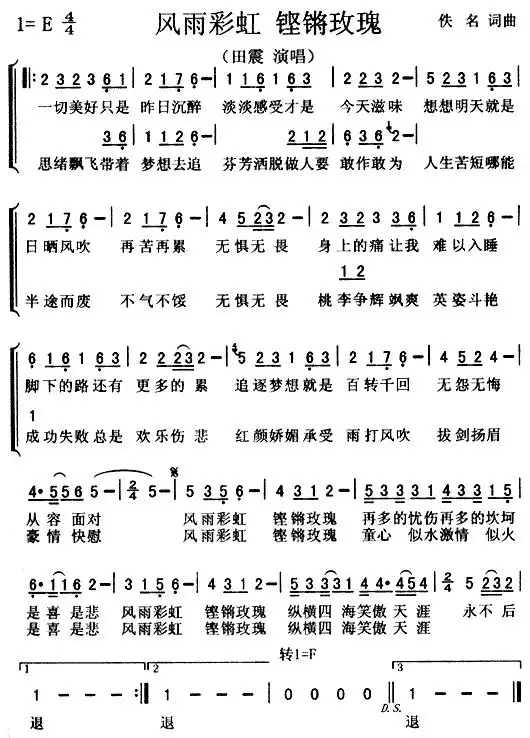 1= E 4/4 风雨彩虹 铿锵玫瑰 佚 名 词曲
（田震 演唱）
2 3 2 3 2 3 6 1 | 2 1 7 6 - | 1 1 6 1 6 3 | 2 1 7 6 - | 5 2 3 1 6 3 |
一切美好只是 昨日沉醉 淡淡感受才是 今天滋味 想想明天就是
3 6 | | 2 1 2 | 6 3 6 2 - |
思绪飘飞带着 梦想去追 芬芳洒脱做人要 敢作敢为 人生苦短哪能
2 1 7 6 - | 2 1 7 6 - | 4 5 2 3 2 - | 2 3 2 3 3 6 | 1 1 2 6 - |
日晒风吹 再苦再累 无惧无畏 身上的痛让我 难以入睡
1 2
半途而废 不气不馁 无惧无畏 桃李争辉飒爽 英姿斗艳
6 1 6 1 6 3 | 2 2 2 3 2 - | 5 2 3 1 6 3 | 2 1 7 6 2 - | 4 5 2 4 - |
脚下的路还有 更多的 累 追逐梦想就是 百转千回 无怨无悔
1
成功失败总是 欢乐伤 悲 红颜娇媚承受 雨打风吹 拔剑扬眉
4 · 5 5 6 5 - | 2/4 5 - | 5 3 5 6 - | 4 3 1 2 - | 5 3 3 3 5 3 3 1 |
从容 面对 风雨彩虹 铿锵玫瑰 再多的忧伤再多的坎坷
豪情 快慰 风雨彩虹 铿锵玫瑰 童心 似水激情 似火
6 · 1 1 6 2 - | 3 1 5 6 - | 4 3 1 2 - | 5 3 3 1 | 4 · 4 4 5 4 | 2/4 5 2 3 2 |
是喜是悲 风雨彩虹 铿锵玫瑰 纵横四 海笑傲 天 涯 永不 后
是喜是悲 风雨彩虹 铿锵玫瑰 纵横四 海笑傲 天 涯
转1=F
1 2 3
1 - - - :| 1 - - - | 0 0 0 0 | 1 - - - |
D.S.
退 退 退